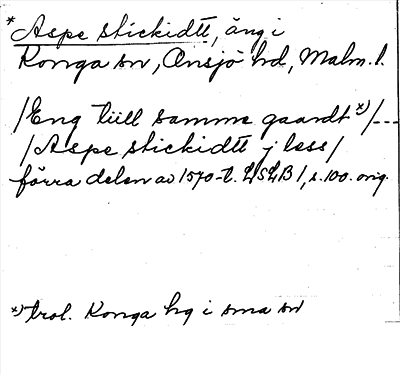 * Aspe stickidtt, äng i
Konga sn, Onsjö hd, Malm. l.
/Eng tiill samme gaardt x)/---
/Aspe stickidtt j less/
förra delen av 1570-t. LSLB I, s. 100. orig.
x) trol. Konga hg i sma sn